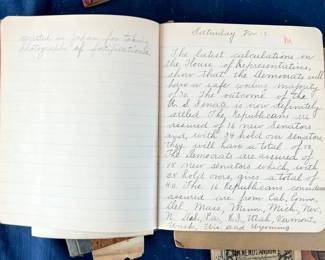 arrested in Japan for taking
photographs of fortifications.
Saturday Nov. 12.
The latest calculations on
the House of Representatives,
show that the Democrats will
have a safe working majority
of 30. The outcome of the
U.S Senate is now definitely
settled. The Republicans are
assured of 16 new Senators
and, with 24 hold over Senators
they will have a total of
The Democrats are assured of
18 new senators which, with
hold overs, gives a total of
The 16 Republicans considered
assured are from Cal, Iowa,
Del, Mass, Minn, Mich, Nev,
N. Dak, Pa, R.I, Utah, Vermont,
Wash, Wis and Wyoming.
MEMORANDUM